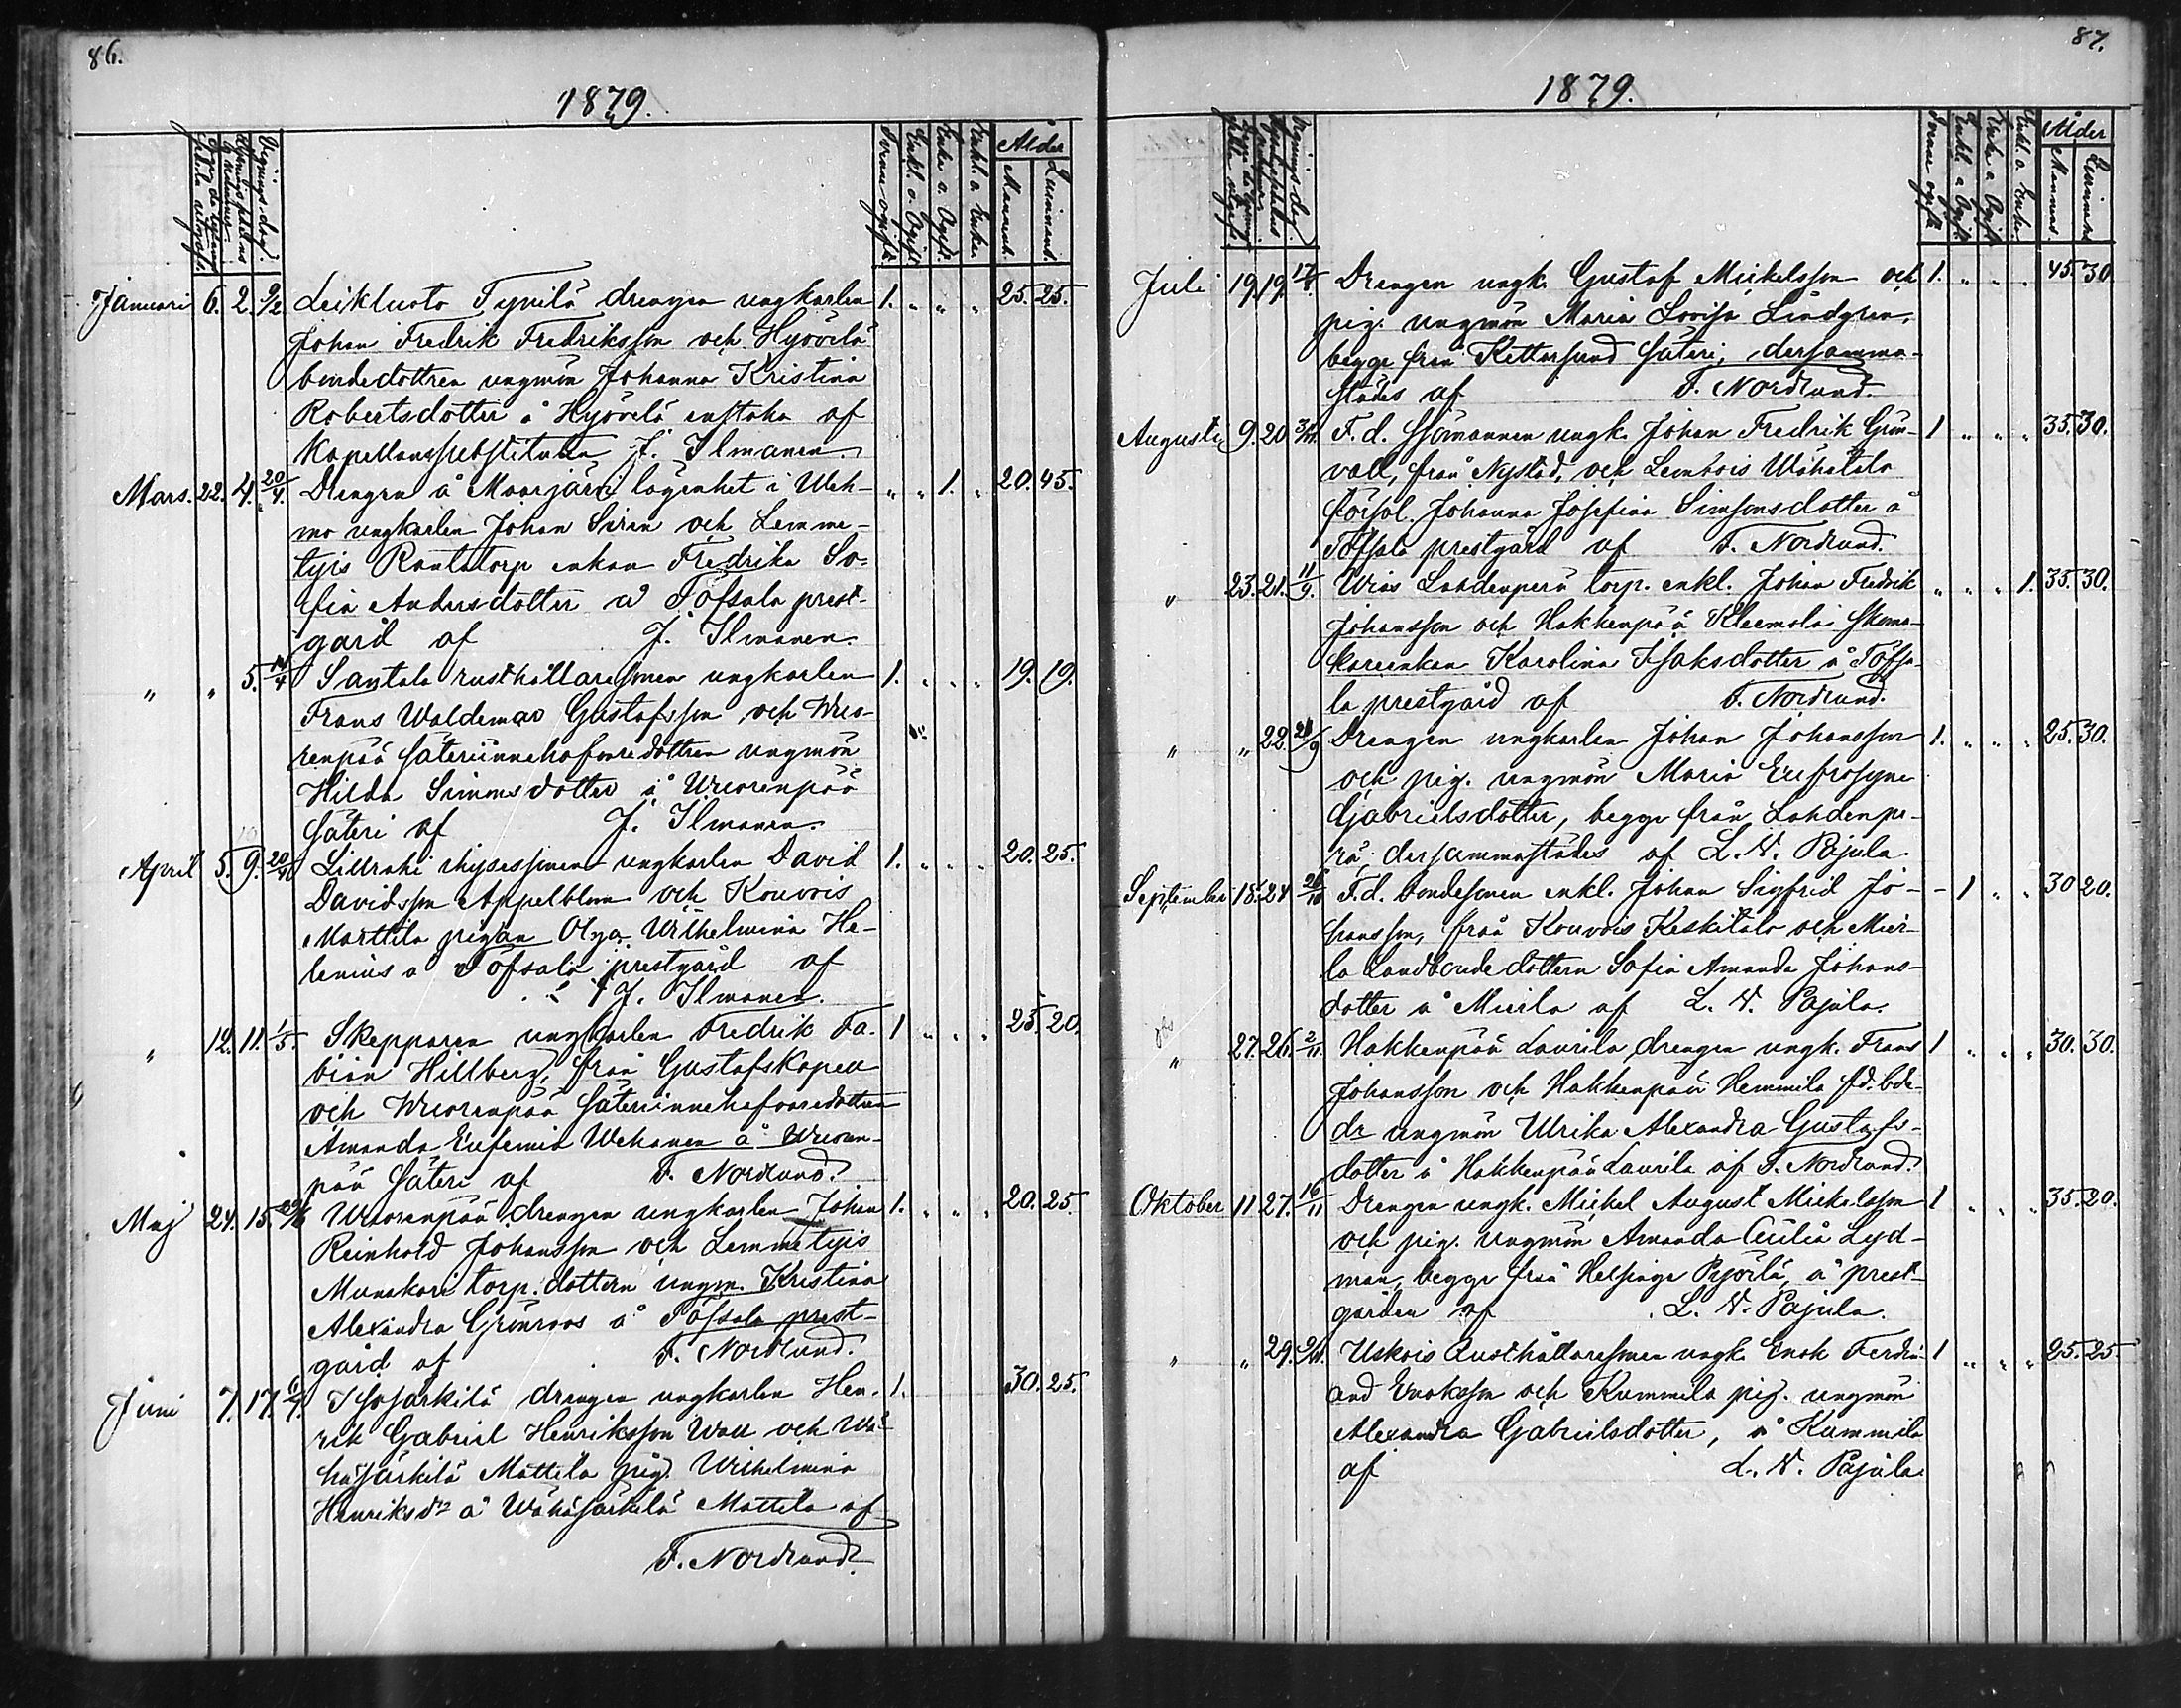 86.
1879.
Vignings dag.
Lysnings sedelns nummer.
Dagen då lysningssedeln utgafs.
Förrut ogifte
Enkl. o. Ogift
Enka o. Ogift.
Enkl. o. Enka
Ålder
Mannens.
Quinnans.
Januari 6. 2. 9/2. Leikluoto Tynilä drengen ungkarlen 1. „ „ „ 25. 25.
Johan Fredrik Fredriksson och Hyövelä
bondedottren ungmön Johanna Kristina
Robertsdotter å Hyövelä enstaka af
Kapellanssubstituten J. Ilmanen.
Mars. 22. 4. 20/4. Drengen å Maarjärvi lägenhet i Weh- „ „ 1. „ 20. 45.
mo ungkarlen Johan Siren och Lemme-
tyis Rantatorp enkan Fredrika So-
fia Andersdotter å Töfsala prest-
gård af J. Ilmanen.
„ „ 5. 14/4 Santala rusthållaresonen ungkarlen 1. „ „ „ 19. 19.
Frans Waldemar Gustafsson och Wuo-
renpää säteriinnehafvaredottren ungmön
Hilda Simmsdotter å Wuorenpää
säteri af J. Ilmanen.
April 5. 9. 20/4 ungkarlen David 1. „ „ „ 20. 25.
Davidsson Appelblom och Kouvois
Marttila pigan Olga Wilhelmina He-
lenius å Töfsala prestgård af
J. Ilmanen.
„ 12. 11. 1/5. Skepparen ungkarlen Fredrik Fa- 1 „ „ „ 25. 20.
bian Hillberg, från Gustafskapell
och Wuorenpää säteriinnehafvaredottren
Amanda Eufemia Wekanen å Wuoren-
pää säteri af F. Nordlund.
Maj 24. 15. 29/6 Wuorenpää drengen ungkarlen Johan 1. „ „ „ 20. 25.
Reinhold Johansson och Lemmetyis
Munakari torp. dottern ungm. Kristina
Alexandra Grönroos å Töfsala prest-
gård af F. Nordlund.
Juni 7. 17. 6/7. Isosärkilä drengen ungkarlen Hen- 1. 30. 25.
rik Gabriel Henriksson Wall och Wä-
häsärkilä Mattila pig. Wilhelmina
Henriksdr å Wähäsärkilä Mattila af
F. Nordlund.
87.
1879.
Vignings dag.
Förrut ogifte
Enkl. o. Ogift.
Enka o. Ogift
Enkl. o. Enka.
Ålder
Mannens.
Quinnans
Juli 19. 19. 17/8. Drengen ungk. Gustaf Mickelsson och 1. „ „ „ 45. 30.
pig. ungmön Maria Lovisa Lindgren,
begge från Kettarsund säteri, dersamma-
städes af F. Nordlund.
Augusti 9. 20 31/8. F. d. sjömannen ungk. Johan Fredrik Grön- 1 „ „ „ 35. 30.
vall, från Nystad, och Lembois Wähätalo
försol. Johanna Josefina Simsonsdotter å
Töfsala prestgård af F. Nordlund.
„ 23. 21. 11/9. Wias Lahdenperä torp. enkl. Johan Fredrik „ „ „ 1. 35. 30.
Johansson och Hakkenpää Kleemola skoma-
kareenkan Karolina Isaksdotter å Töfsa-
la prestgård af F. Nordlund.
„ „ 22. 28/9 Drengen ungkarlen Johan Johansson 1. „ „ „ 25. 30.
och pig. ungmön Maria Eufrosyne
Gabrielsdotter, begge från Lahdenpe-
rä, dersammastädes af L. W. Pajula.
September 18. 24 26/10 F. d. bondesonen enkl. Johan Sigfrid Jo- - 1 „ „ 30 20.
hansson, från Kouvois Keskitalo och Mier-
la Landbondedottern Sofia Amanda Johans-
dotter å Mierla af L. W. Pajula.
„ 27. 26. 2/11. Hakkenpää Laurila drengen ungk. Frans 1 „ „ „ 30. 30.
Johansson och Hakkenpää Hemmila fd. bde-
dr ungmön Ulrika Alexandra Gustafs-
dotter å Hakkenpää Laurila af F. Nordlund.
Oktober 11 27. 16/11 Drengen ungk. Mickel August Mickelsson 1 „ „ „ 35. 20.
och pig. ungmön Amanda Cecilia Lyd-
man, begge från Helsinge Pyörilä, å prest-
gården af L. W. Pajula.
„ „ 29. 9/11. Uskois Rusthållaresonen ungk. Enok Ferdin- 1 „ „ „ 25. 25.
and Enoksson och Kummila pig. ungmön
Alexandra Gabrielsdotter, å Kummila
af L. W. Pajula.